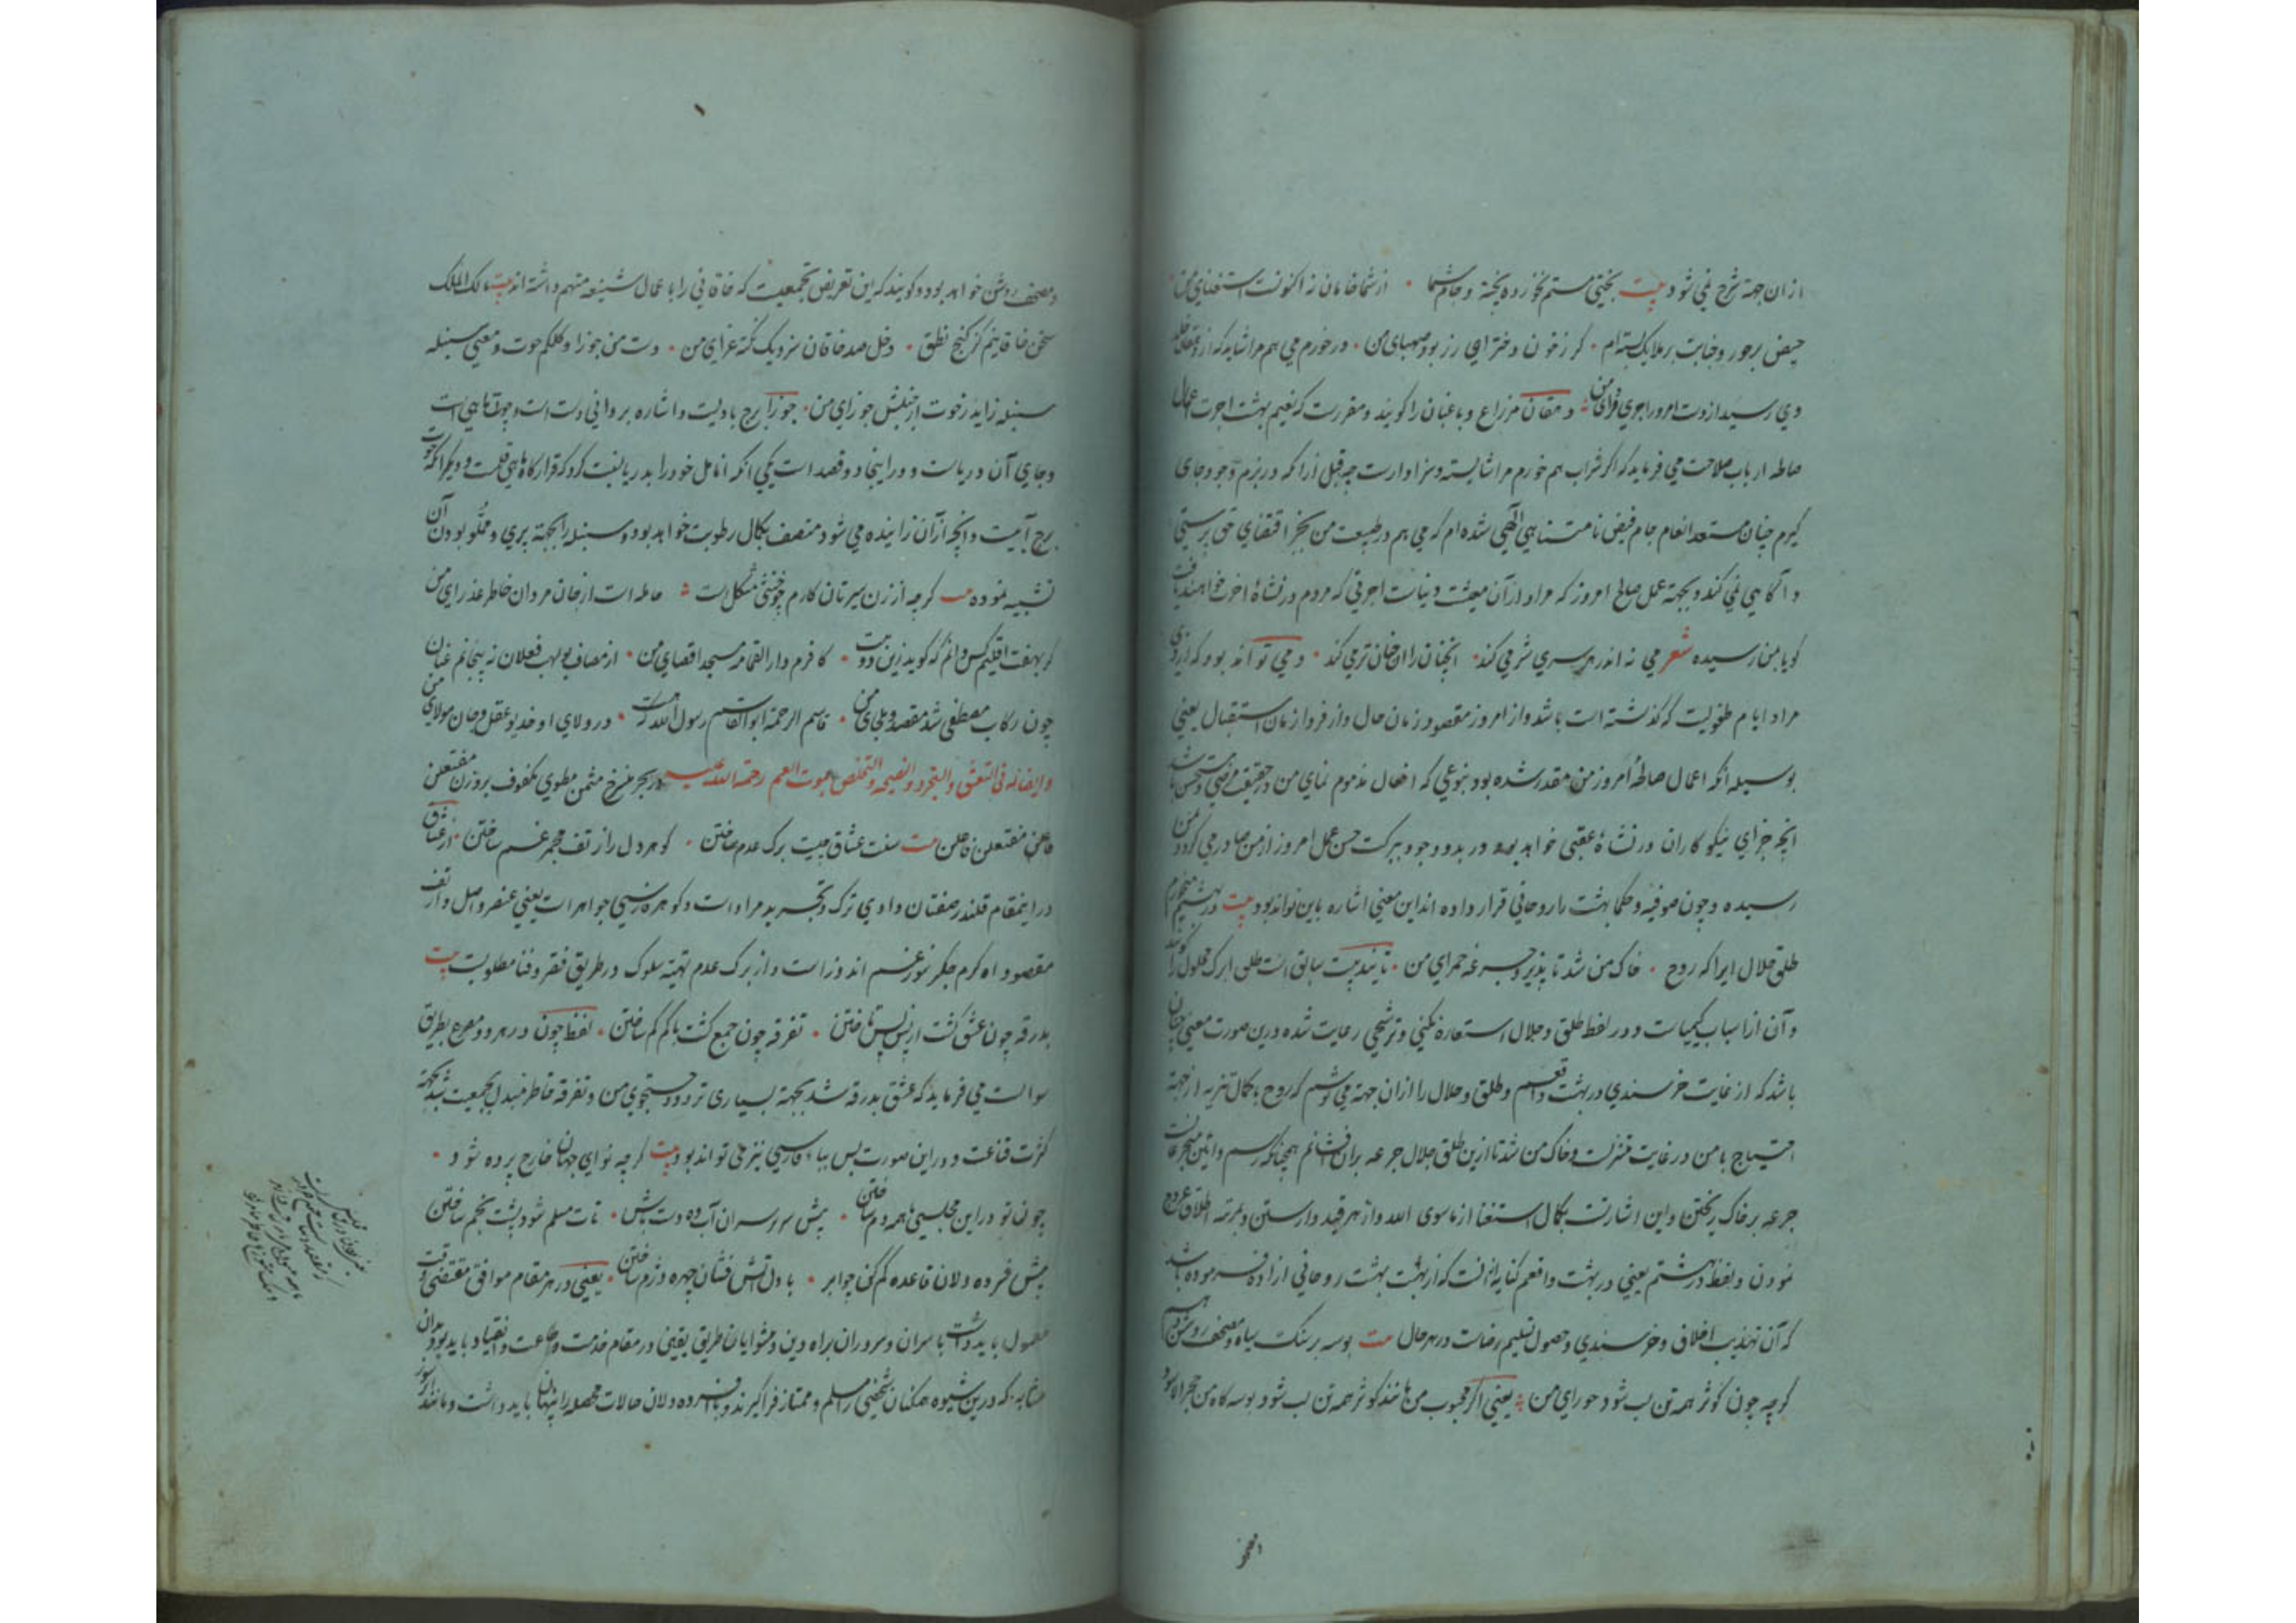 ازان جهة شرح نمی شود بیت بختی مستم نخورده پخته و خام شما • از شما خامان نه اکنونست استغنای من
حیض بر حور و جنابت بر ملایک بسته ام • گر ز خون دختران رز بود صهبای من • در خورم می هم مرا شاید که از دهقان خلد
دی رسید از دست امروز اجری فردای من • دهقان مزارع و باغبان را گویند و مقررست که نعیم بهشت اجرت اعمال
صالحه ارباب صلاحت می فرماید که اگر شراب هم خورم مرا شایسته و سزاوارست چه قبل ازانکه در بزم وجود جای
گیرم چنان مستعد انعام جام فیض نامتناهی الهی شده ام که می هم در طبیعت من بجز اقتضای حق پرستی
و آگاهی نمی کند و بجهة عمل صالح امروز که مراد ازان معیشت دنیاست اجرتی که مردم در نشاة اخرت خواهند یافت
گویا بمن رسیده شعر می نه اندر هر سری شر می کند • آنچنان را آن چنان تر می کند • و می تواند بود که از دی
مراد ایام طفولیت که گذشته است باشد و از امروز مقصود زمان حال و از فردا زمان استقبال یعنی
بوسیله آنکه اعمال صالحه امروز من مقدر شده بود بنوعی که افعال مذموم نمای من در حقیقت مرضی و مستحسن باشد
انچه جزای نیکو کاران در نشاة عقبی خواهد بود در بدو وجود ببرکت حسن عمل امروز از من صادر می گردد بمن
رسیده و چون صوفیه و حکما بهشت را روحانی قرار داده اند این معنی اشاره باین تواند بود بیت در بهشتم میخورم
طلق حلال ایرا که روح • خاک من شد تا پذیرد جرعه حمرای من • تایید بیت سابق است طلق ابرک محلول را گویند
و آن از اسباب کیمیاست و در لفظ طلق و حلال استعاره و ترشیحی رعایت شده درین صورت معنی چنان
باشد که از غایت خرسندی در بهشت واقعم و طلق و حلال را ازان جهة می نوشم که روح با کمال تنزیه از جهة
احتیاج با من در غایت منزلت و خاک من شد تا ازین طلق حلال جرعه بران افشانم همچنانکه رسم و آیین
جرعه بر خاک ریختن و این اشارتست بکمال استغنا از ماسوی الله و از هر قید وارستن و بمرتبه اطلاق عروج
نمودن و لفظ در بهشتم یعنی در بهشت واقعم کنایه ازانست که از بهشت بهشت روحانی اراده فرموده باشد
که آن تهذیب اخلاق و خرسندی و حصول تسلیم رضاست در هر حال بیت بوسه بر سنگ سیاه و مصحف روشن دهم
گرچه چون کوثر همه تن لب شود حورای من • یعنی اگر محبوب من مانند کوثر همه تن لب شود بوسه گاه من حجر الاسود
و مصحف روشن خواهد بود و گویند که این تعریض بجمعیست که خاقانی را باعمال شنیعه متهم داشته اند بیت مالک الملک
سخن خاقانیم کز گنج نطق • دخل صد خاقان سزد یک نکته غرای من • دست من جوزا و کلکم حوت و معنی سنبله
سنبله زاید ز حوت از جنبش جوزای من • جوزا برج بادیست و اشاره بر وانی دست است و حوت ماهی است
و جای آن دریاست و در اینجا دو قصد است یکی انکه انامل خود را بدریا نسبت کرد که قرارگاه ماهی قلمست و دیگر انکه حوت
برج آبیست و انچه ازان زاینده می شود متصف بکمال رطوبت خواهد بود و سنبله را بجهة پری و مملو بودن آن
تشبیه نموده بیت گرچه از زن سیرتان کارم چو خنثی مشکل است • حامله است از جان مردان خاطر عذرای من
گر بهفت اقلیم کس دانم که گوید زین دو بیت • کافرم دار القمامه مسجد اقصای من • از مصاف بولهب فعلان نه پیچانم عنان
چون رکاب مصطفی شد مقصد و ملجای من • قاسم الرحمة ابو القاسم رسول الله که هست • در ولای او خدیو عقل و جان مولای من
و ایضا له فی التعشق و التجرد و النصیحه و التخلص بموت العم رحمة الله علیه در بحر منسرخ مثمن مطوی مکفوف بروزن مفتعلن
فاعلن مفتعلن فاعلن بیت سنت عشاق چیست برگ عدم ساختن • گوهر دل را ز تف مجمر غم ساختن • از عشاق
در این مقام قلندر صفتان وادی ترک و تجرید مراد است و گوهر فارسی جواهر است یعنی عنصر و اصل و از تف
مقصود اه گرم جگر سوز غم اندوز است و از برگ عدم تهیه سلوک در طریق فقر و فنا مطلوبست بیت
بدرقه چون عشق گشت از پس پس تاختن • تفرقه چون جمع گشت با کم کم ساختن • لفظ چون در هر دو مصرع بطریق
سوالست می فرماید که عشق بدرقه شد بجهة بسیاری تردد و جستجوی من و تفرقه خاطر مبدل بجمعیت شد بجهة
کثرت قناعت و در این صورت پس بباء فارسی نیز می تواند بود بیت گرچه نوای جهان خارج پرده شود •
چون تو در این مجلسی با همه دم ساختن • پیش سر و سران آب ده دست باش • تات مسلم شود پشت بخم ساختن
پیش فسرده دلان قاعده گم کن چو ابر • با دل آتش فشان چهره دژم ساختن • یعنی در هر مقام موافق مقتضی وقت
معمول باید داشت با سران و سروران براه دین و پیشوایان طریق یقین در مقام خدمت و طاعت و انقیاد باید بود بدان
مثابه که درین شیوه همگنان شخصی را مسلم و ممتاز فرا گیرند و با فسرده دلان حالات محصله را پنهان باید داشت و مانند ابر